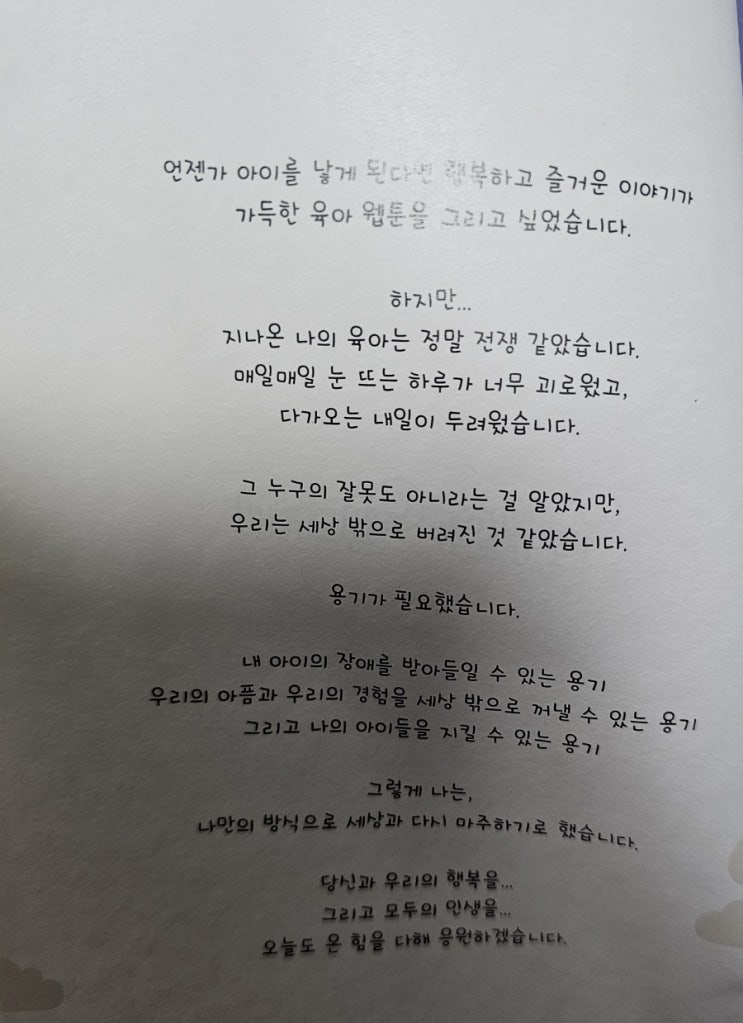 언젠가 아이를 낳게 된다면 행복하고 즐거운 이야기가
가득한 육아 웹툰을 그리고 싶었습니다.
하지만...
지나온 나의 육아는 정말 전쟁 같았습니다.
매일매일 눈 뜨는 하루가 너무 괴로웠고,
다가오는 내일이 두려웠습니다.
그 누구의 잘못도 아니라는 걸 알았지만,
우리는 세상 밖으로 버려진 것 같았습니다.
용기가 필요했습니다.
내 아이의 장애를 받아들일 수 있는 용기
우리의 아픔과 우리의 경험을 세상 밖으로 꺼낼 수 있는 용기
그리고 나의 아이들을 지킬 수 있는 용기
그렇게 나는,
나만의 방식으로 세상과 다시 마주하기로 했습니다.
당신과 우리의 행복을...
그리고 모두의 인생을...
오늘도 온 힘을 다해 응원하겠습니다.